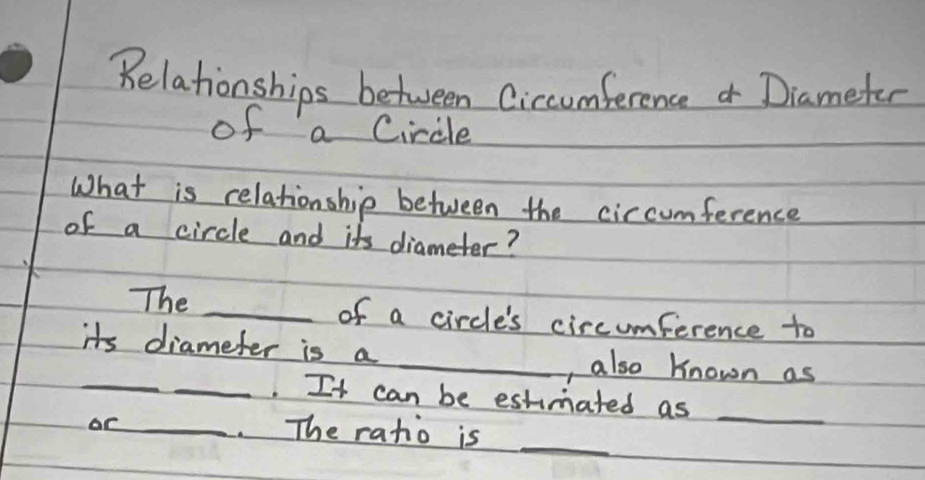 Relationships between Circumference & Diameter
of a Circle
What is relationship between the circumference
of a circle and its diameter?
The _____ of a circle's circumference to
its diameter is a ________, also known as
____ ____. It can be estimated as _____
or _____. The ratio is _____